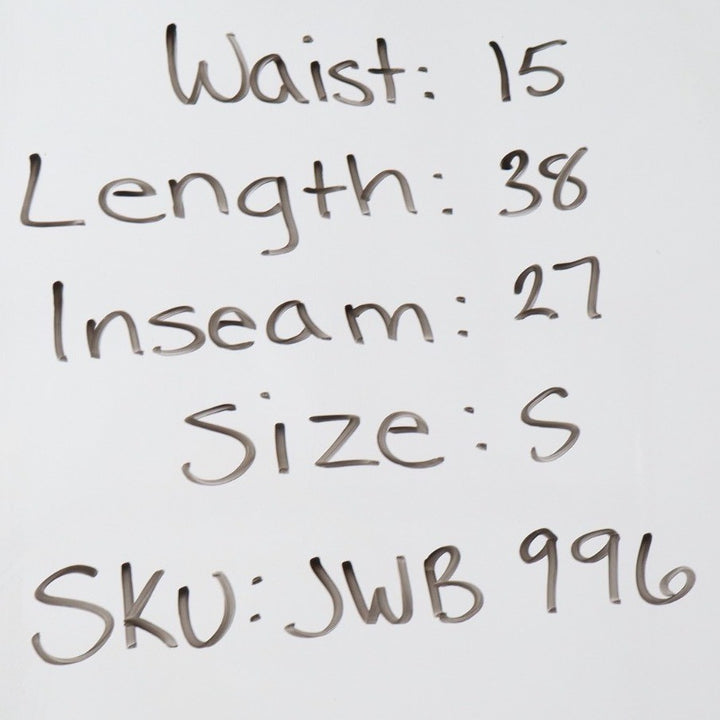 Waist: 15
Length: 38
Inseam: 27
Size: S
SKU: JWB 996